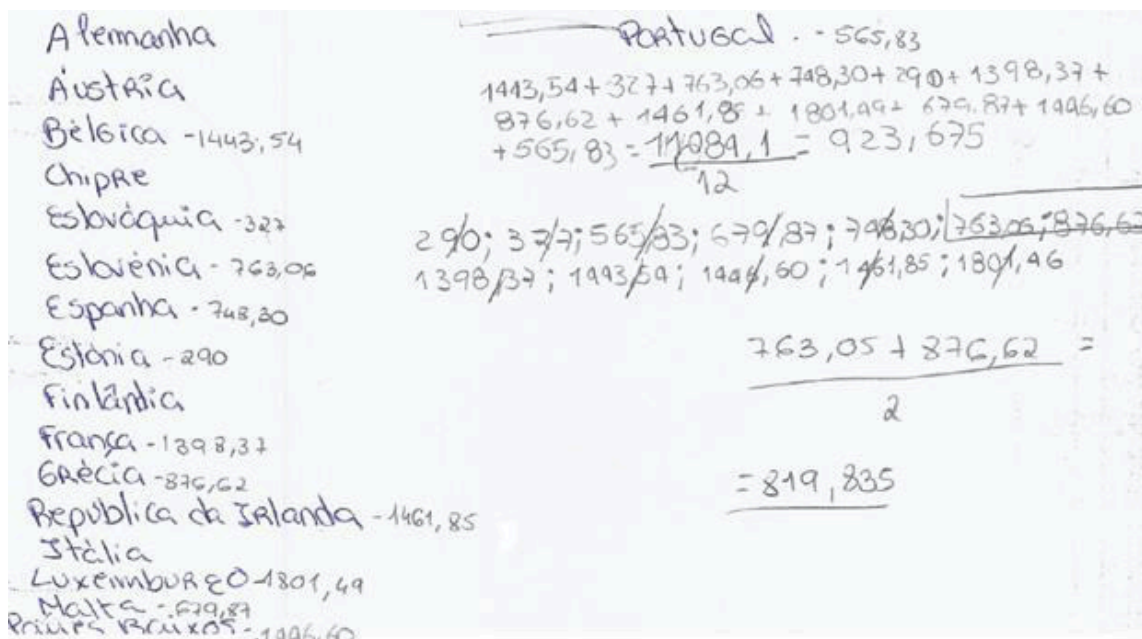 Alemanha
Áustria
Bélgica - 1443,54
Chipre
Eslováquia - 327
Eslovénia - 763,06
Espanha - 748,30
Estónia - 290
Finlândia
França - 1398,37
Grécia - 876,62
República da Irlanda - 1461,85
Itália
Luxemburgo - 1801,49
Malta - 679,87
Países Baixos - 1446,60
Portugal - 565,83
1443,54 + 327 + 763,06 + 748,30 + 290 + 1398,37 +
876,62 + 1461,85 + 1801,49 + 679,87 + 1446,60
+ 565,83 = 11084,1 = 923,675
12
290; 327; 565,83; 679,87; 748,30; 763,06; 876,62
1398,37; 1443,54; 1446,60; 1461,85; 1801,46
763,05 + 876,62 =
2
= 819,835